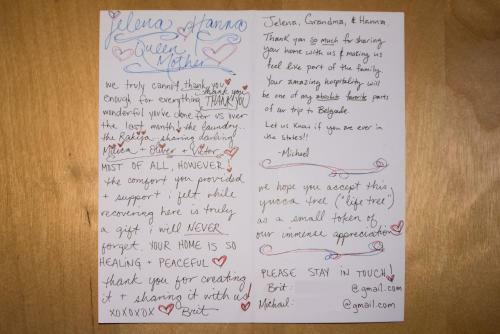 Jelena Hanna
Queen
Mother
we truly cannot thank you
thank you
enough for everything THANK YOU
wonderful you've done for us over
the last month: the laundry..
the Rakija, sharing darling
Milica + Oliver + Victor.
MOST OF ALL, HOWEVER
the comfort you provided
+ support i felt while
recovering here is truly
a gift i will NEVER
forget. YOUR HOME IS SO
HEALING + PEACEFUL
thank you for creating
it + sharing it with us!
XOXOXOX Brit
Jelena, Grandma, & Hanna,
Thank you so much for sharing
your home with us & making us
feel like part of the family.
Your amazing hospitality will
be one of my absolute favorite parts
of our trip to Belgrade.
Let us know if you are ever in
the States!!
-Michael
we hope you accept this
yucca tree ("life tree")
as a small token of
our immense appreciation
PLEASE STAY IN TOUCH!
Brit: @gmail.com
Michael: @gmail.com